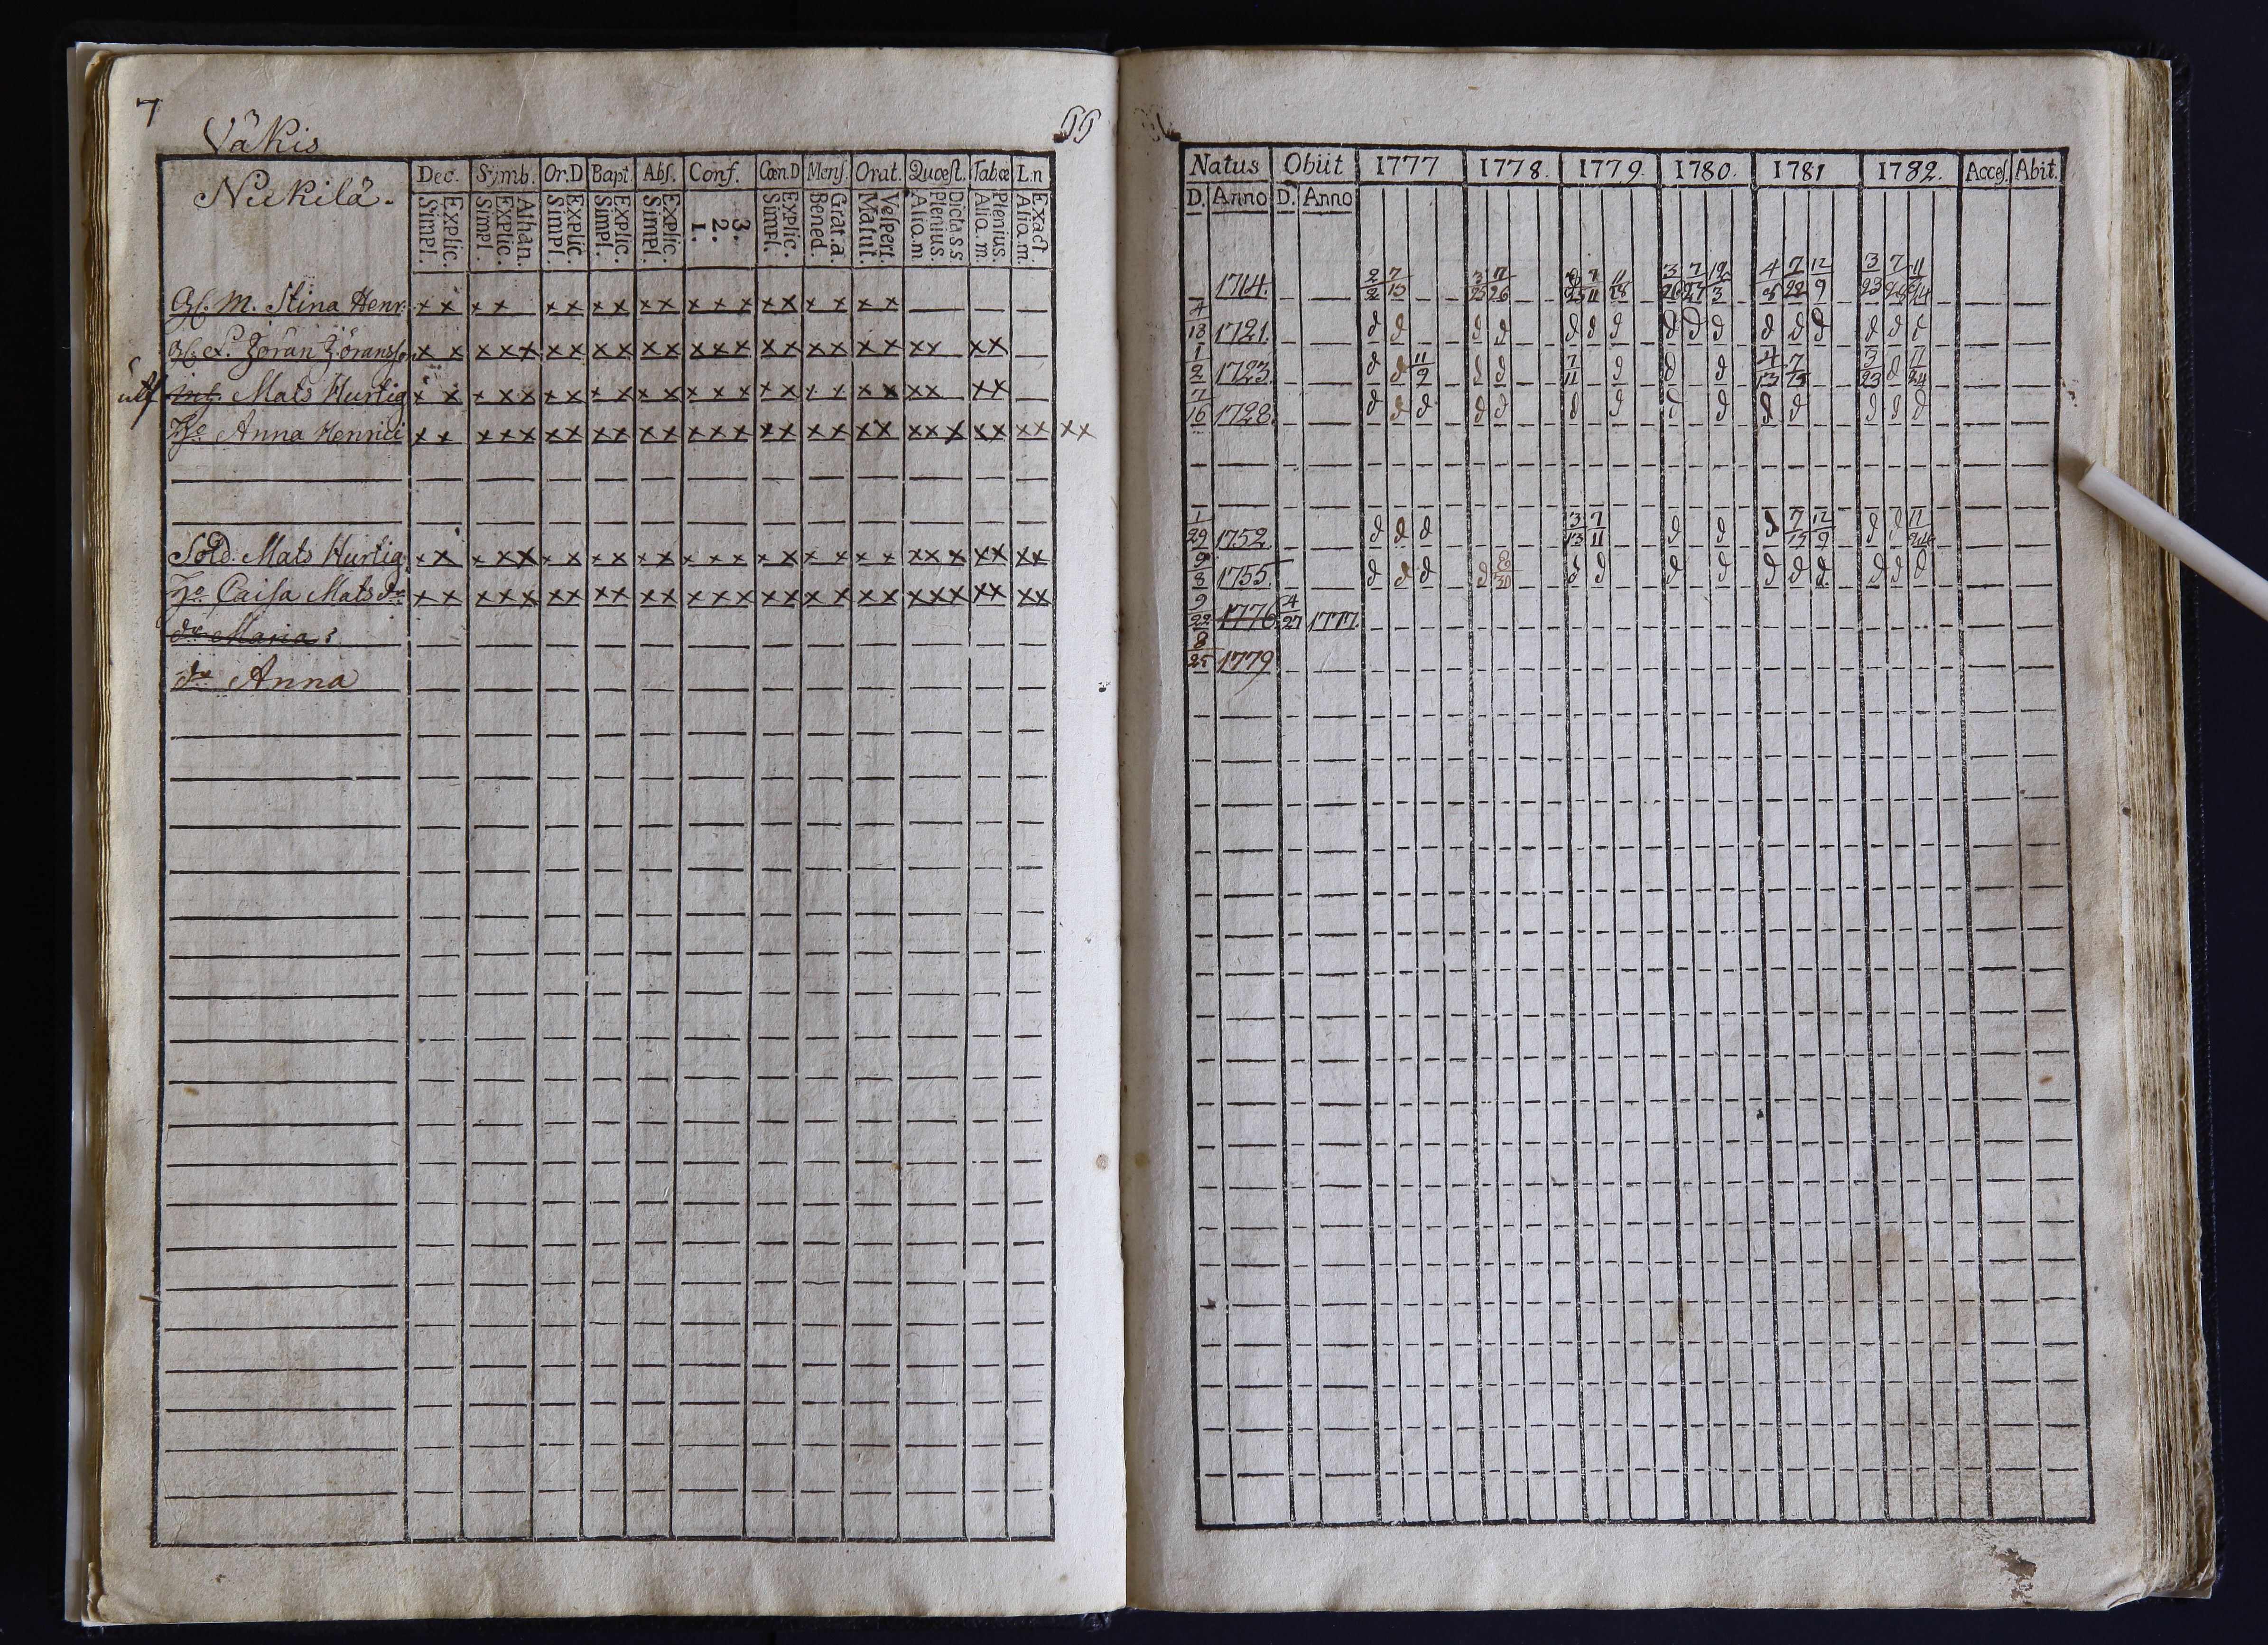 7
Väkis
Nickilä.
Dec. Symb. Or.D Bapt. Abs. Conf. Cœn.D Mens. Orat. Quæst. Tabœ L.n
Explic. Simpl. Athan. Explic. Simpl. Explic. Simpl. Explic. Simpl. Explic. Simpl. 3. 2. 1. Explic. Simpl. Grat.a. Bened. Vespert. Matut. Dicta s.s Plenius. Aliq.m Plenius. Aliq.m. Exact. Aliq.m.
M. Stina Henr: x x x x x x x x x x x x x x x x x x x
Jöran Jöransson x x x x x x x x x x x x x x x x x x x x x x x x
utf Mats Hurtig x x x x x x x x x x x x x x x x x x x x x x x x
Anna Henrici x x x x x x x x x x x x x x x x x x x x x x x x x x x x x
Sold. Mats Hurtig x x x x x x x x x x x x x x x x x x x x x x x x x x x
Caisa Matsdr x x x x x x x x x x x x x x x x x x x x x x x x x x x
dr Maria
dr Anna
Natus Obiit 1777 1778. 1779. 1780. 1781 1782. Acces. Abit.
D. Anno D. Anno
1714. 2/2 7/13 3/25 7/26 11/18 3/26 7/27 12/3 7/22 12/9 3/23 11/24
4/18 1721. d d d d d d d d d d d d d d d d
1/2 1723. d d 11/9 d d 7/11 d d d 4/13 7/15 3/23 d 11/24
7/16 1728. d d d d d d d d d d d d d d
1/29 1752. d d d 3/13 7/11 d d d 7/15 12/9 d d 11/24
9/8 1755. d d d d 8/30 d d d d d d d d d d
9/22 1776 4/27 1777.
8/25 1779